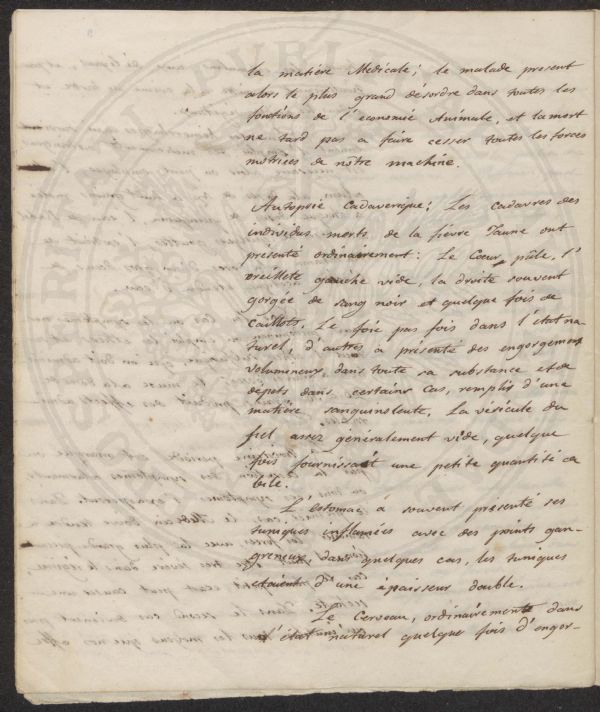 la matière Medicale; le malade present
alors le plus grand désordre dans toutes les
fonctions de l'économie Animale, et la mort
ne tard pas a faire cesser toutes les forces
motrices de nôtre machine.
Autopsie Cadaverique; Les cadavres des
individus morts de la fièvre Jaune ont
présenté ordinairement: Le Cœur pâle, l'
oreillete gauche vide, la droite souvent
gorgée de sang noir et quelque fois de
Caillots. Le foie pas fois dans l'état na-
turel, d'autres à présenté des engorgement
volumineux, dans toute sa substance et de
dépots dans certains cas, remplis d'une
matière sanguinolente. La vésicule du
fiel assez généralement vide, quelque
fois fournissait une petite quantité de
bile.
L'estomac à souvent présenté ses
tuniques inflamées avec des points gan-
greneux, dans quelques cas, les tuniques
etaient d'une épaisseur double.
Le Cerveau, ordinairement dans
l'état naturel quelque fois d'engor-